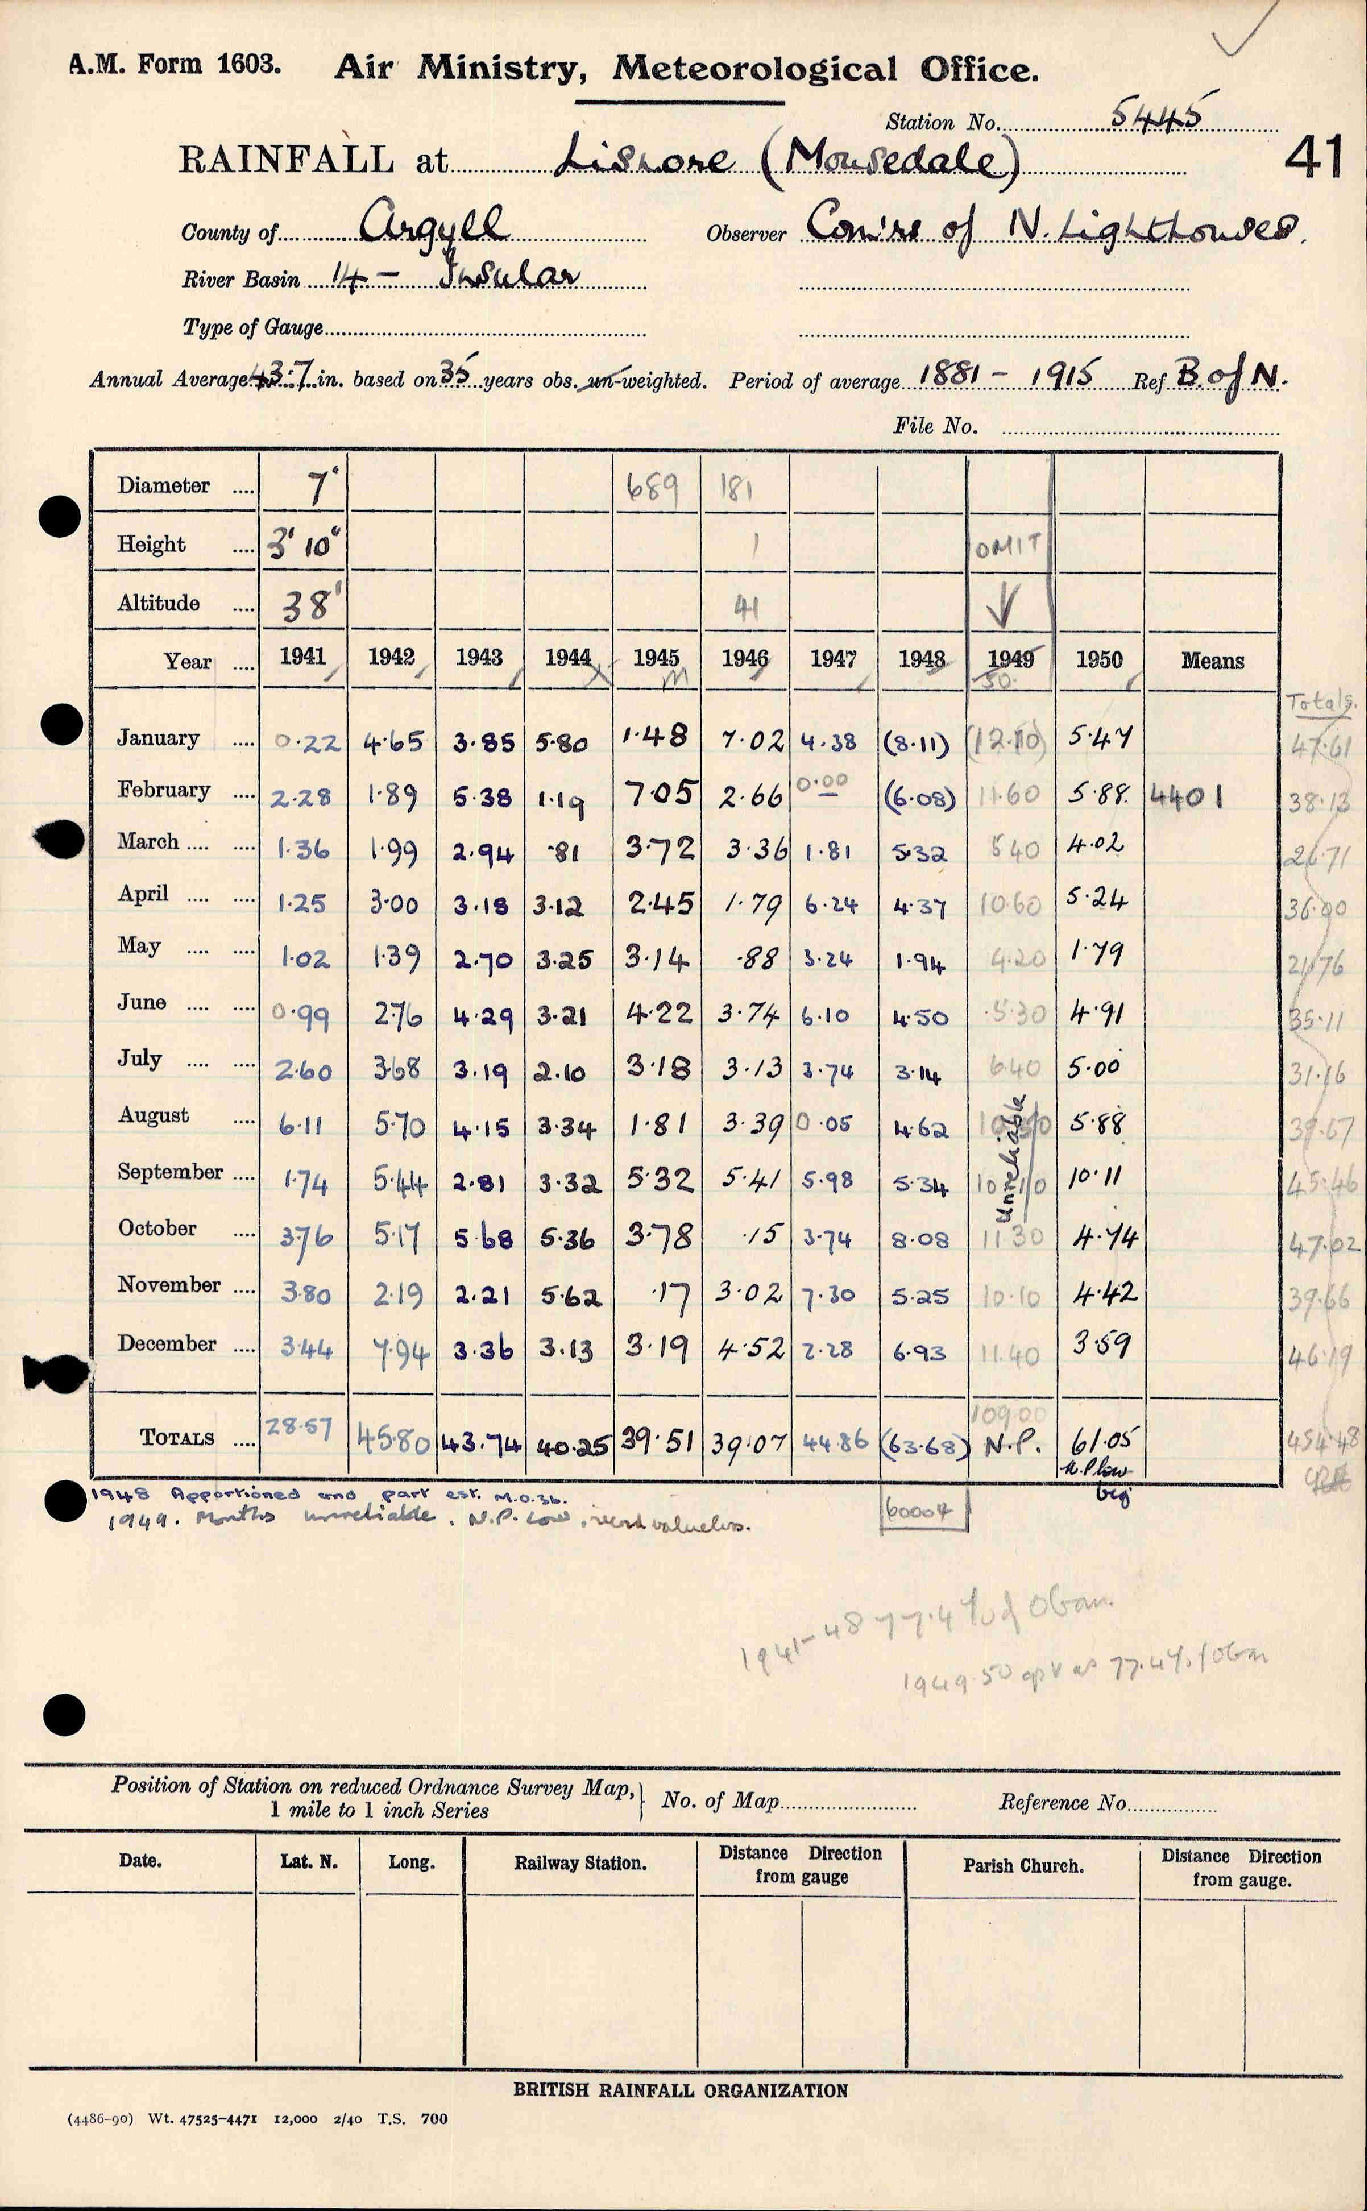 A.M. Form 1603. Air Ministry, Meteorological Office.
Station No. 5445
RAINFALL at Lismore (Mousedale) 41
County of Argyll Observer Com'rs of N. Lighthouses.
River Basin 14 - Insular
Type of Gauge
Annual Average 43.7 in. based on 35 years obs. un-weighted. Period of average 1881 - 1915 Ref B. of N.
File No.
Diameter .... 7" 689 181
Height .... 3' 10" 1 OMIT
Altitude .... 38' 41
Year .... 1941 1942 1943 1944 1945 1946 1947 1948 1949 1950 Means
M 50.
Totals.
January .... 0.22 4.65 3.85 5.80 1.48 7.02 4.38 (8.11) (12.10) 5.47 47.61
February .... 2.28 1.89 5.38 1.19 7.05 2.66 0.00 (6.08) 11.60 5.88 4401 38.13
March .... .... 1.36 1.99 2.94 .81 3.72 3.36 1.81 5.32 8.40 4.02 26.71
April .... .... 1.25 3.00 3.18 3.12 2.45 1.79 6.24 4.37 10.60 5.24 36.00
May .... .... 1.02 1.39 2.70 3.25 3.14 .88 3.24 1.94 4.20 1.79 21.76
June .... .... 0.99 2.76 4.29 3.21 4.22 3.74 6.10 4.50 5.30 4.91 35.11
July .... .... 2.60 3.68 3.19 2.10 3.18 3.13 3.74 3.14 6.40 5.00 31.16
August .... 6.11 5.70 4.15 3.34 1.81 3.39 0.05 4.62 5.88
September .... 1.74 5.44 2.81 3.32 5.32 5.41 5.98 5.34 10.10 10.11 45.46
Unreliable
October .... 3.76 5.17 5.68 5.36 3.78 .15 3.74 8.08 11.30 4.74 47.02
November .... 3.80 2.19 2.21 5.62 .17 3.02 7.30 5.25 10.10 4.42 39.66
December .... 3.44 7.94 3.36 3.13 3.19 4.52 2.28 6.93 11.40 3.59 46.19
109.00
TOTALS .... 28.57 45.80 43.74 40.25 39.51 39.07 44.86 (63.68) N.P. 61.05 454.48
N.P low
beg
1948 Apportioned and part est. M.O.36. 60004
1949. Months unreliable. N.P. Low, record valueless.
1941-48 77.4% of Oban.
1949-50 op v as 77.4% of Oban
Position of Station on reduced Ordnance Survey Map, 1 mile to 1 inch Series No. of Map Reference No.
Date. Lat. N. Long. Railway Station. Distance Direction from gauge Parish Church. Distance Direction from gauge.
BRITISH RAINFALL ORGANIZATION
(4486-90) Wt. 47525-4471 12,000 2/40 T.S. 700